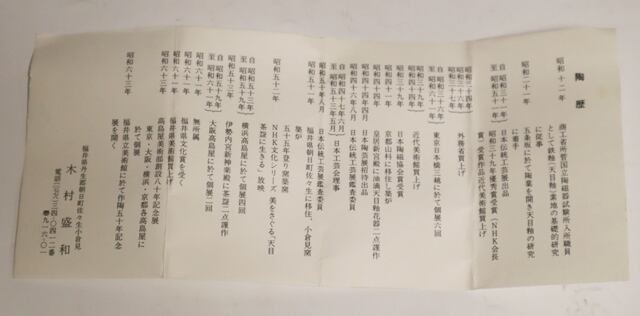 陶歴
昭和十二年
商工省所管国立陶磁器試験所入所職員
として鉄釉(天目釉)素地の基礎的研究
に従事
昭和二十一年
五条坂に於て陶業を開き天目釉の研究
に着手
自 昭和三十一年
至 昭和五十一年
日本伝統工芸展出品
昭和三十九年優秀賞受賞(NHK会長
賞)受賞作品近代美術館買上げ
昭和三十四年
外務省買上げ
自 昭和三十六年
東京日本橋三越に於て個展六回
昭和三十四年
近代美術館買上げ
昭和三十九年
日本陶磁協会賞受賞
昭和四十年
京都山科に移住し築炉
昭和四十四年
皇居新宮殿に油滴天目釉花器二点謹作
昭和四十四年
日本陶芸展招待出品
昭和四十六年八月
日本伝統工芸展鑑査委員
自 昭和四十七年六月
至 昭和五十三年五月
日本工芸会理事
昭和五十年八月
日本伝統工芸展鑑査委員
昭和五十一年
福井県朝日町佐々生に移住、小倉見
築炉
昭和五十二年
五十五年登り窯築窯
NHK文化シリーズ 美をさぐる「天目
茶盌に生きる」放映
自 昭和五十三年
至 昭和五十九年
横浜高島屋に於て個展四回
昭和五十三年
伊勢内宮新神楽殿に茶盌二点謹作
自 昭和五十九年
至 昭和六十一年
大阪高島屋に於て個展二回
昭和六十一年
無所属
昭和六十一年
福井県文化賞を受く
昭和六十一年
福井県美術館買上げ
昭和六十三年
高島屋美術部創設八十年記念展
東京・大阪・横浜・京都各高島屋に
於て個展
昭和六十三年
福井県立美術館に於て作陶五十年記念
展を開く
福井県丹生郡朝日町佐々生小倉見
木村盛和